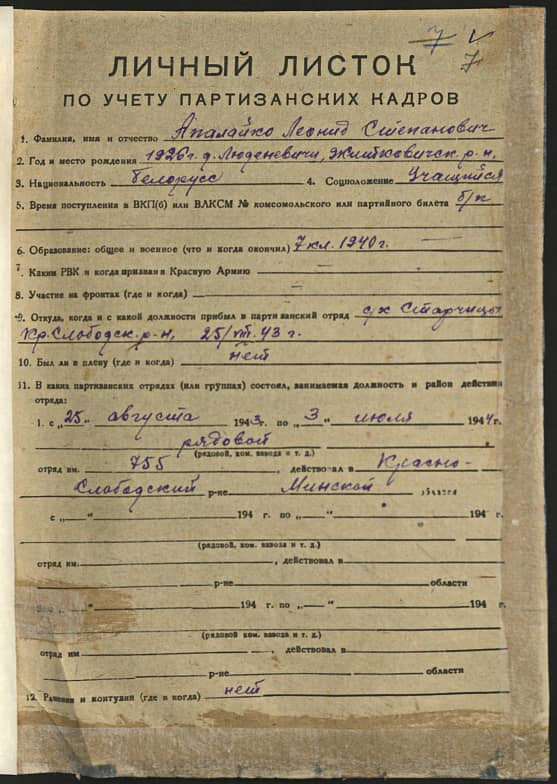 7
7
ЛИЧНЫЙ ЛИСТОК
ПО УЧЕТУ ПАРТИЗАНСКИХ КАДРОВ
1. Фамилия, имя и отчество Апалайко Леонид Степанович
2. Год и место рождения 1926 г. д. Люденевичи, Житковичск. р-н,
3. Национальность белорусс 4. Соцположение Учащийся
5. Время поступления в ВКП(б) или ВЛКСМ № комсомольского или партийного билета б/п
6. Образование: общее и военное (что и когда окончил) 7 кл. 1940 г. —
7. Каким РВК и когда призван в Красную Армию —
8. Участие на фронтах (где и когда) —
9. Откуда, когда и с какой должности прибыл в партизанский отряд с/х Старицы
Кр. Слободск. р-н, 25/VIII. 43 г.
10. Был ли в плену (где и когда) нет
11. В каких партизанских отрядах (или группах) состоял, занимаемая должность и район действия
отряда:
1. с „25“ августа 1943 г. по „3“ июля 1944 г.
рядовой
(рядовой, ком. взвода и т. д.)
отряд им. 755, действовал в Красно-
Слободский р-не Минской области
с „—“ 194 г. по „—“ 194 г.
(рядовой, ком. взвода и т. д.)
отряд им., действовал в
р-не области
“ 194 г. по „—“ 194 г.
(рядовой, ком. взвода и т. д.)
отряд им, действовал в
р-не области
12. Ранения и контузии (где и когда) нет